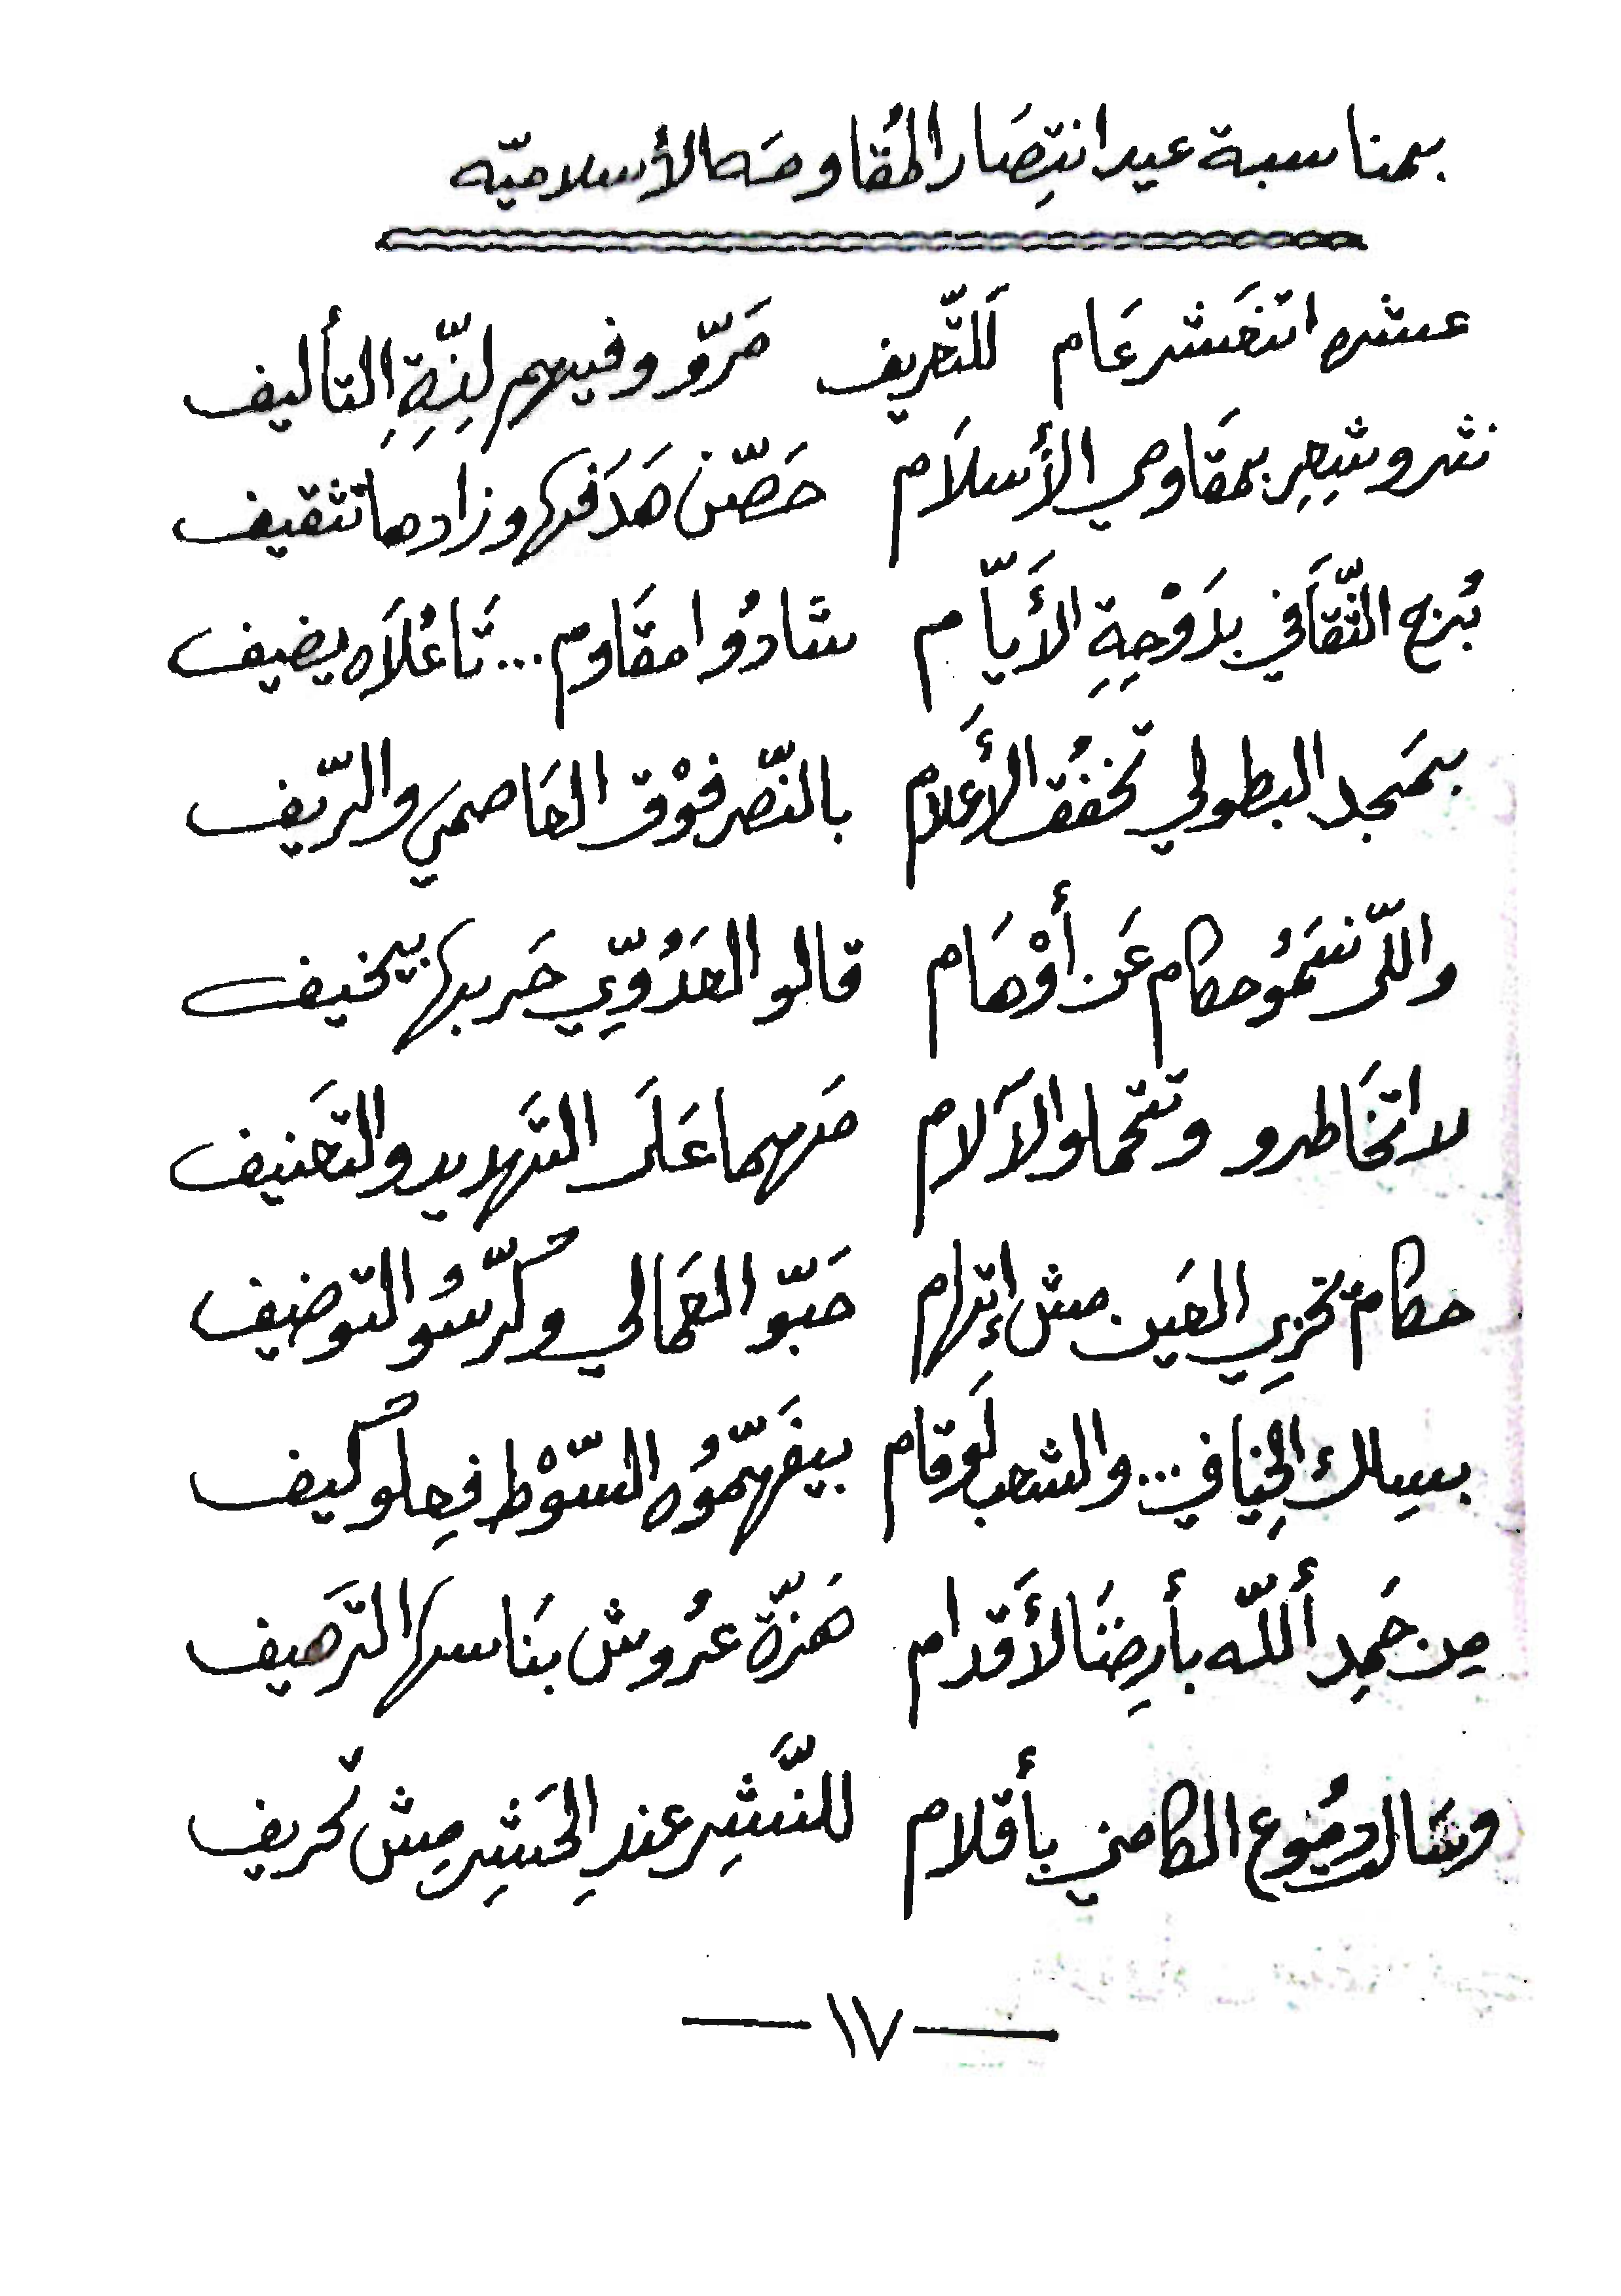 بمناسبة عيد انتِصَار المُقاومَه الأسلاميّه
عشره اتنَعَشر عَام لَلتّعريف مَرّو وفيهم لِذِّةِ التأليف
نثر وشِعِر بمقَاومي الأَسلَام حَصّن هَدَفها وزادها تثقيف
بُرج الثّقَافي بدَوْحِةِ الأَيّام شادُوا مقَاوم... تَا عُلَاه يضيف
بمَجد البطولي تخفُق الأَعلام بالنّصر فوْق العَاصمِي والرّيف
واللّى نسَمُو حكام عَن أوْهَام قالو العَدُوّيِ حَربها بيخيف
لا تخَاطرو وتتحملو الآلام مَهما عَلَى التَهديد والتَعنيف
حكام تخزيِ العَين مش إتهام حَبّو العمَالي وكُرّسُو التوضيف
بسِلك الخِيَافي... والشعب لَو قام بيفَهّمُوه السّوْط فِعلو كُيف
مِن حَمِد أللّه بأرِضنَا لأَقدام هَزّة عرُوش بنَاسها الترَصيف
وسَال دمُوع الكامني بأقلام للنَّشِر عندِ الحَشِر مِش تحريف
— ١٧ —